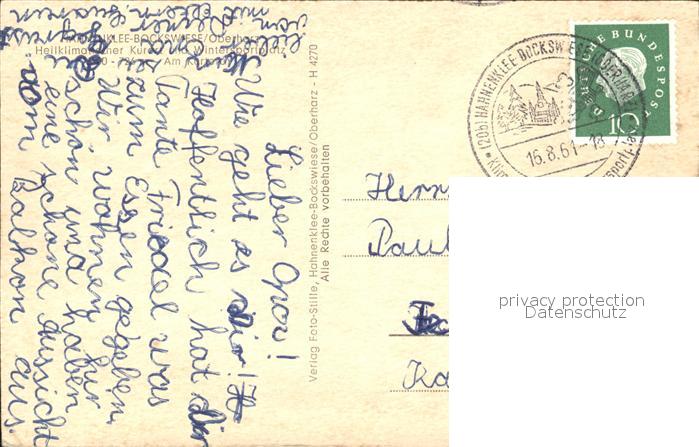 HAHNENKLEE-BOCKSWIESE/Oberharz
Heilklimatischer Kurort und Wintersportplatz
Am Kur
Lieber Opa!
Wie geht es Dir?
Hoffentlich hat Dir
Tante Friedel was
zum Essen gegeben.
Wir wohnen hier
schön und haben
eine schöne Aussicht
vom Balkon aus.
Verlag Foto-Stille, Hahnenklee-Bockswiese/Oberharz - H 4270
Alle Rechte vorbehalten
(20b) HAHNENKLEE-BOCKSWIESE (OBERHARZ)
16.8.61-18
DEUTSCHE BUNDESPOST
10
Herrn
Paul
Ka
privacy protection
Datenschutz